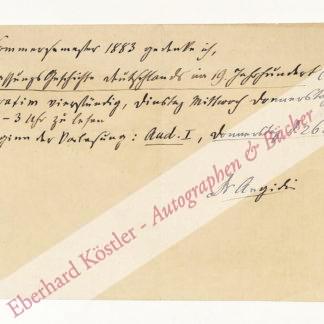 Sommersemester 1883 gedenke ich,
assungsgeschichte Deutschlands im 19. Jahrhundert
vierstündig, Dienstag Mittwoch Donnersta
–3 Uhr zu lesen
ginn der Vorlesung: Aud. I, Donnerstag 26
Dr Aegidi
Eberhard Köstler - Autographen & Bücher